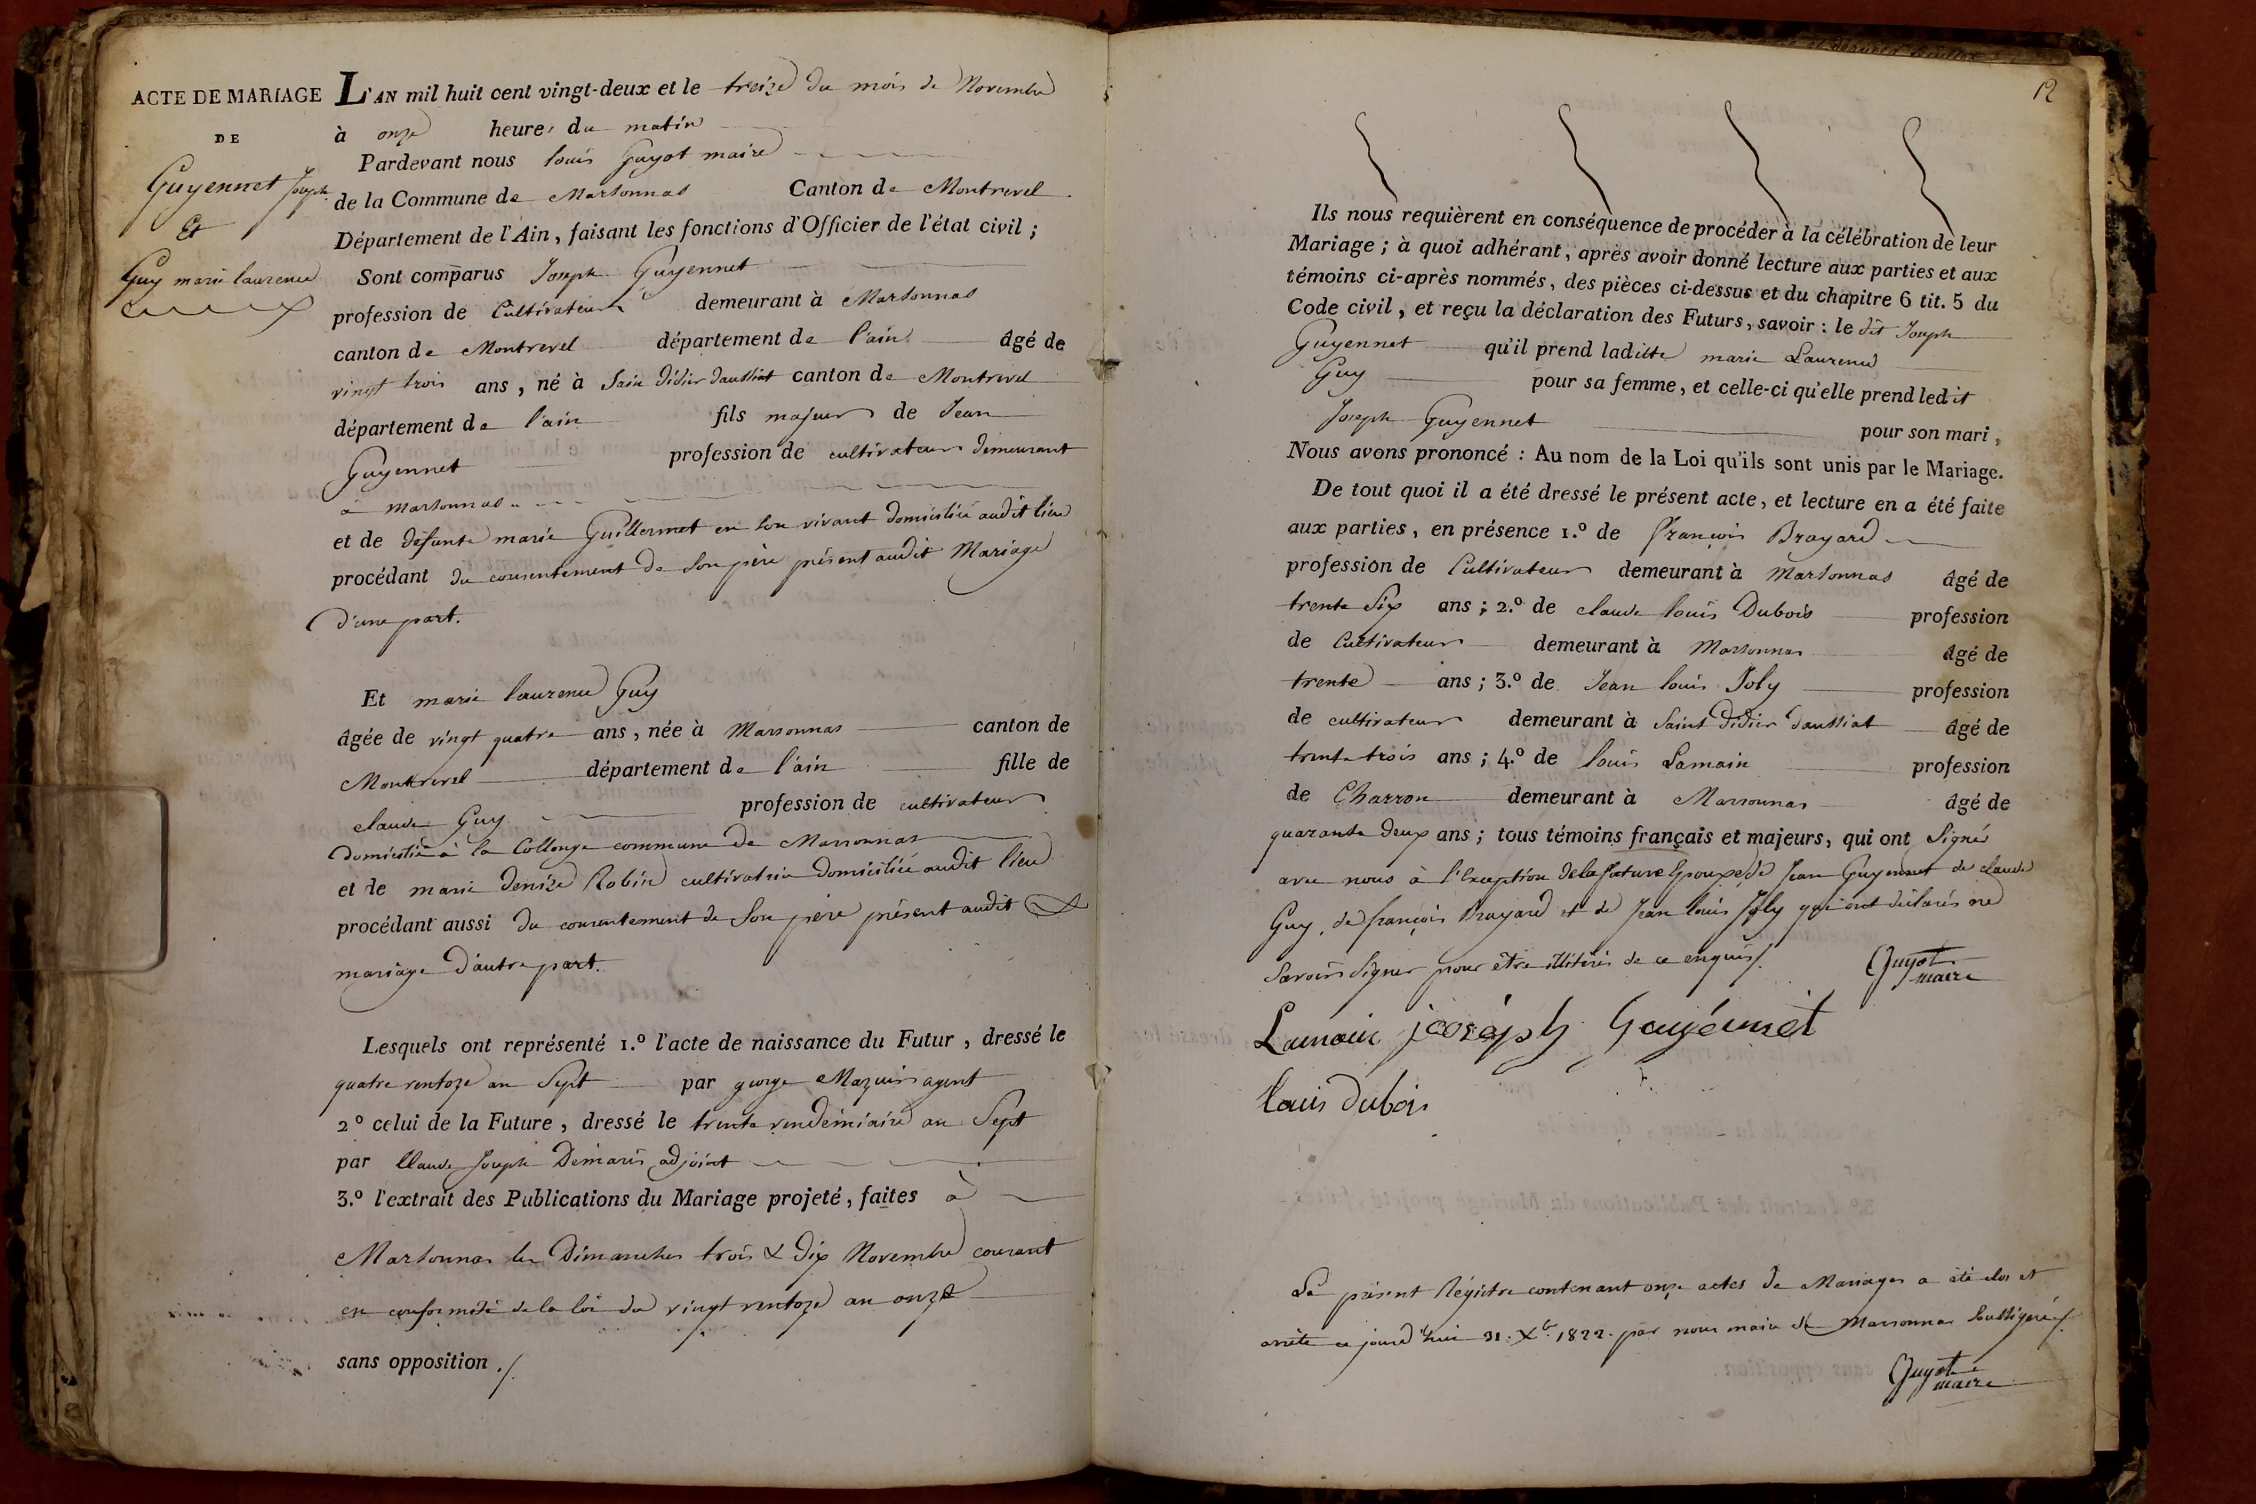 ACTE DE MARIAGE
DE
Guyennet Joseph
Et
Guy marie laurence
L'AN mil huit cent vingt-deux et le treize du mois de Novembre
à onze heures du matin
Pardevant nous louis Guyot maire
de la Commune de Marsonnas Canton de Montrevel
Département de l'Ain, faisant les fonctions d'Officier de l'état civil ;
Sont comparus Joseph Guyennet
profession de Cultivateur demeurant à Marsonnas
canton de Montrevel département de l'ain âgé de
vingt trois ans, né à Sain Didier daussiat canton de Montrevel
département de l'ain fils majeur de Jean
Guyennet profession de cultivateur demeurant
à marsonnas
et de defunte marie Guillermet en son vivant domiciliée audit lieu
procédant du consentement de son père présent audit Mariage
d'une part.
Et marie laurence Guy
âgée de vingt quatre ans, née à Marsonnas canton de
Montrevel département de l'ain fille de
claude Guy profession de cultivateur
domicilié à la Collonge commune de Marsonnas
et de marie denize Robin cultivatrice domiciliée audit lieu
procédant aussi du consentement de son père présent audit
mariage d'autre part.
Lesquels ont représenté 1.º l'acte de naissance du Futur, dressé le
quatre ventoze an Sept par george Mazuir agent
2º celui de la Future, dressé le trente vendemiaire an Sept
par Claude Joseph Demaris adjoint
3.º l'extrait des Publications du Mariage projeté, faites à
Marsonnas les Dimanches trois & dix Novembre courant
en conformité de la loi du vingt ventoze an onze
sans opposition ./.
12
Ils nous requièrent en conséquence de procéder à la célébration de leur
Mariage ; à quoi adhérant, après avoir donné lecture aux parties et aux
témoins ci-après nommés, des pièces ci-dessus et du chapitre 6 tit. 5 du
Code civil, et reçu la déclaration des Futurs, savoir : le dit Joseph
Guyennet qu'il prend laditte marie Laurence
Guy pour sa femme, et celle-ci qu'elle prend ledit
Joseph Guyennet pour son mari,
Nous avons prononcé : Au nom de la Loi qu'ils sont unis par le Mariage.
De tout quoi il a été dressé le présent acte, et lecture en a été faite
aux parties, en présence 1.º de françois Brayard
profession de Cultivateur demeurant à Marsonnas âgé de
trente six ans ; 2.º de claude louis Dubois profession
de Cultivateur demeurant à Marsonnas âgé de
trente ans ; 3.º de Jean louis Joly profession
de cultivateur demeurant à Saint Didier daussiat âgé de
trente trois ans ; 4.º de louis Lamain profession
de Charron demeurant à Marsonnas âgé de
quarante deux ans ; tous témoins français et majeurs, qui ont Signés
avec nous à l'exception de la future Epouse, de Jean Guyennet de claude
Guy, de françois Brayard et de Jean louis Joly qui ont déclarés ne
Savoir Signer pour être illiterés de ce enquis/.
Guyot
maire
Lamain joséph Guyennet
louis dubois
Le présent Régistre contenant onze actes de Mariages a été clos et
arrêté ce jourd'hui 31. Xbre. 1822. par nous maire de Marsonnas Soussigné/.
Guyot
maire